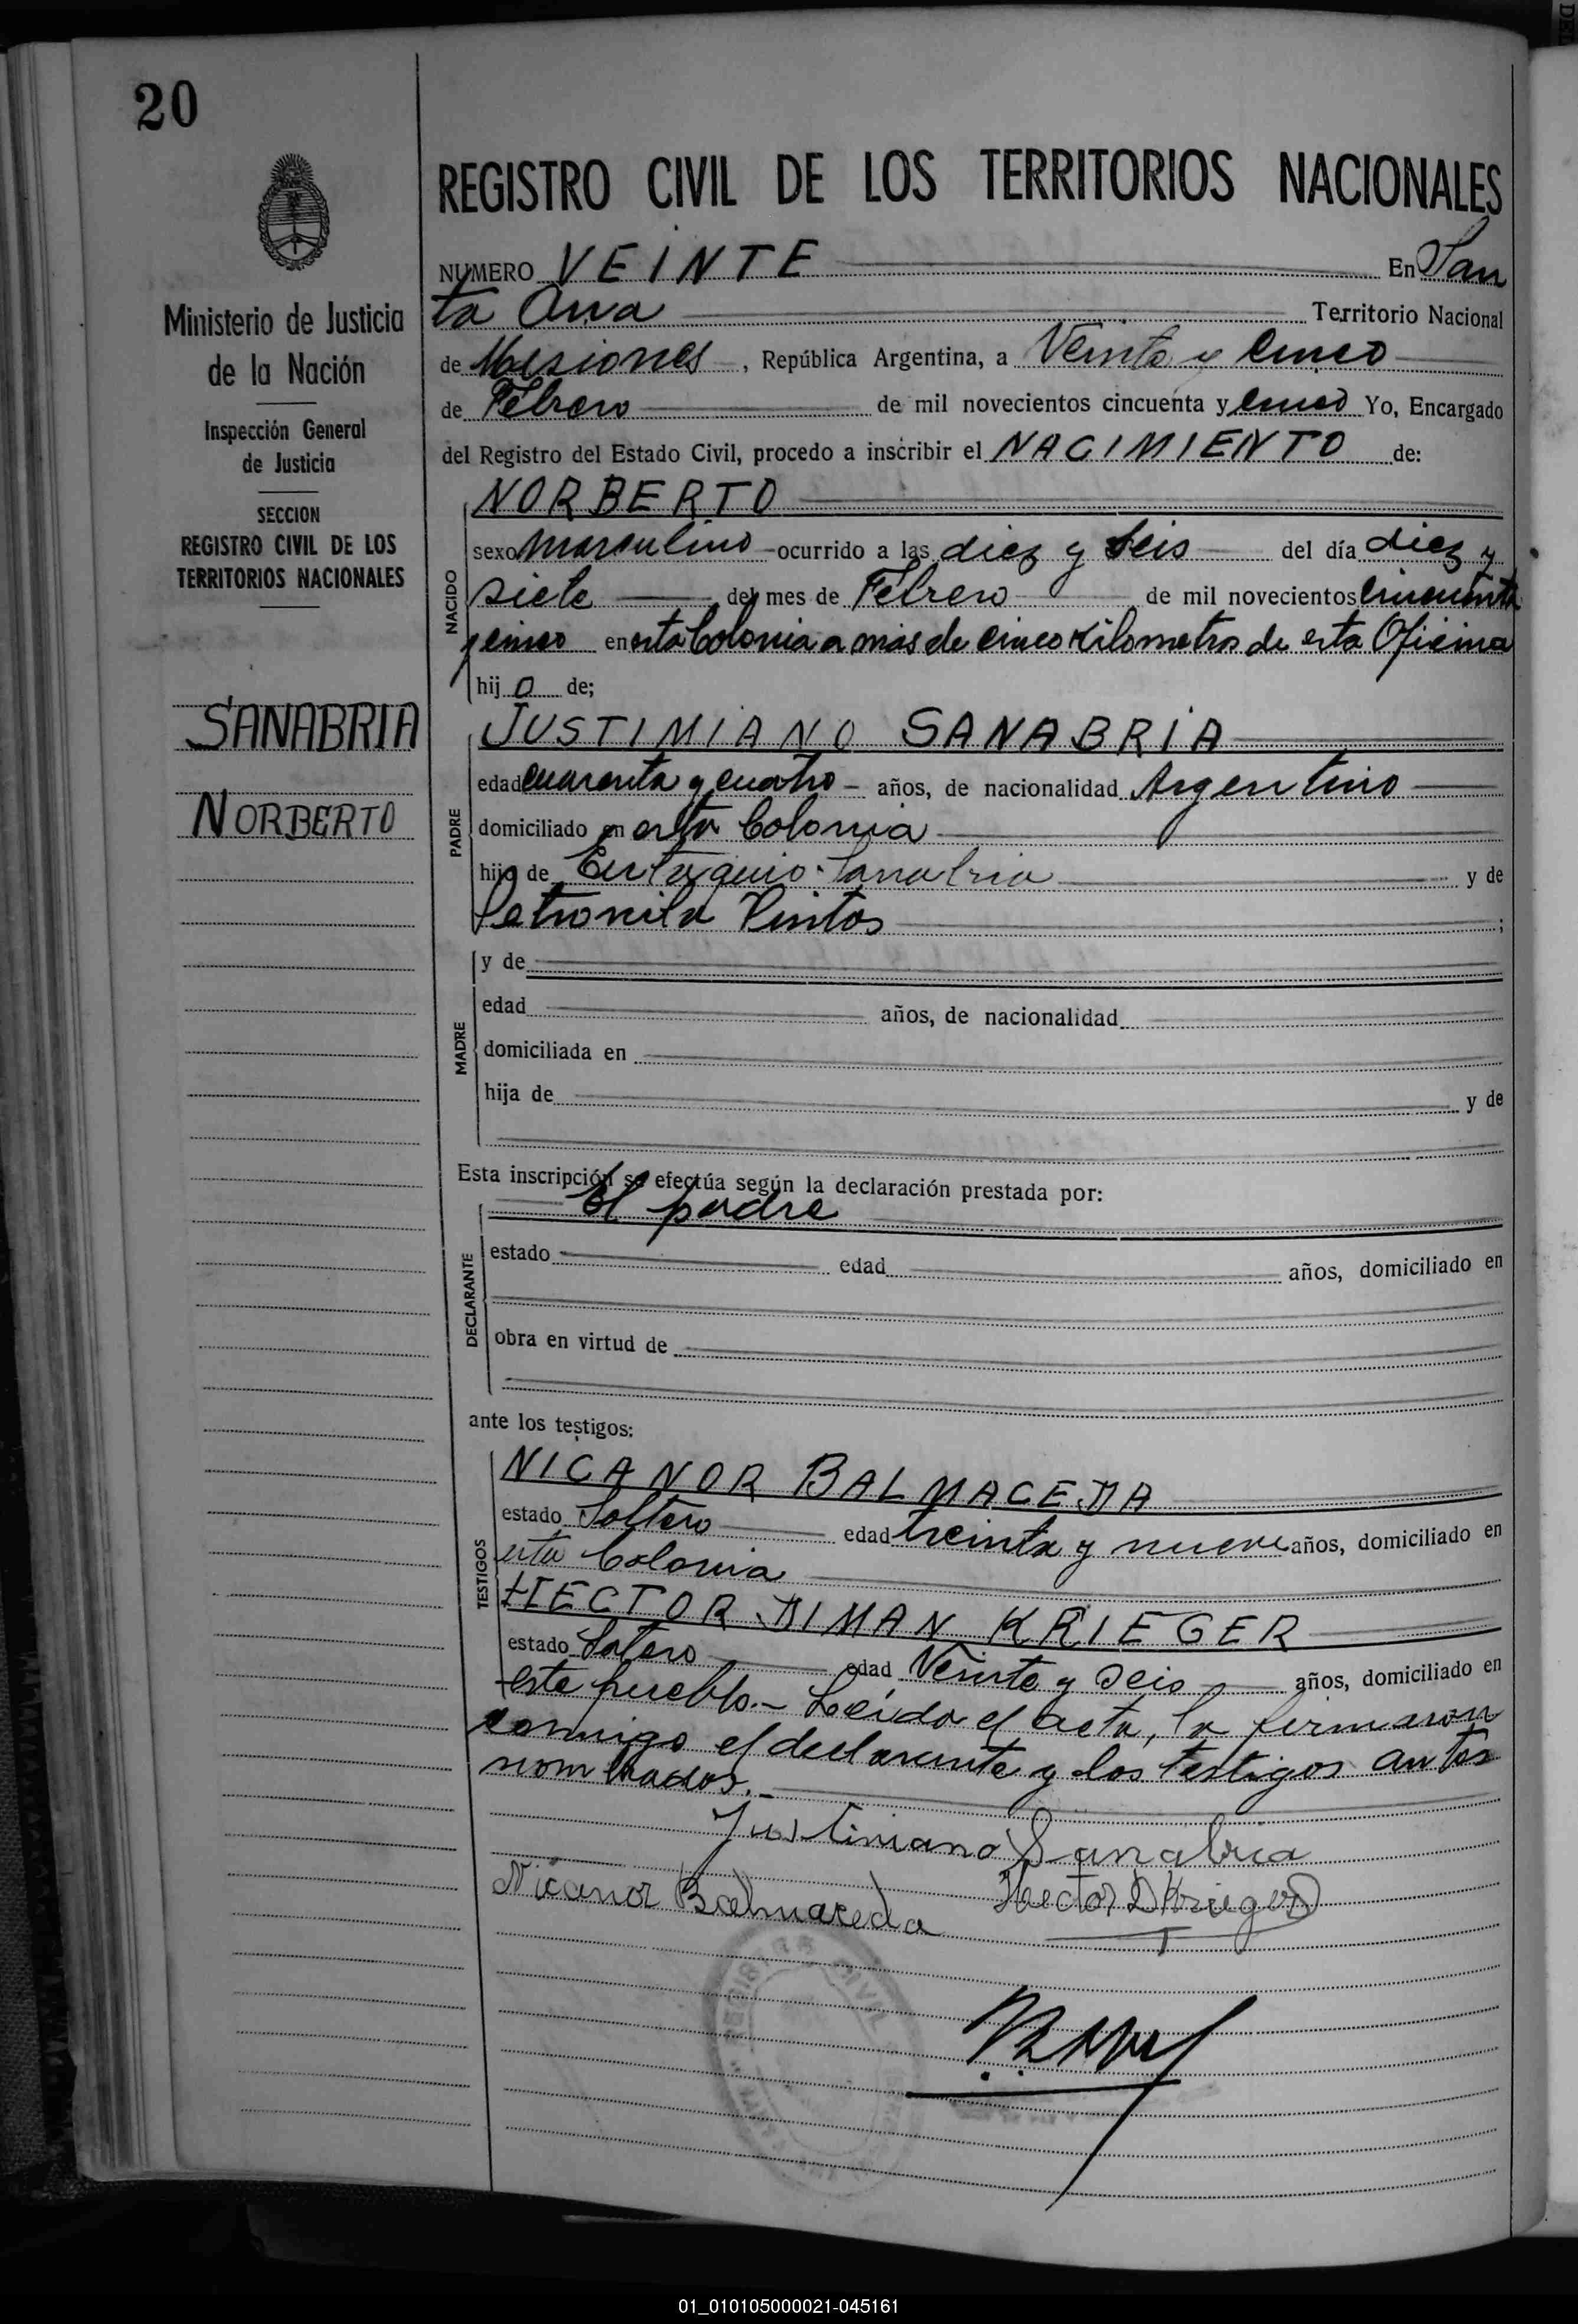 20
Ministerio de Justicia
de la Nación
Inspección General
de Justicia
SECCION
REGISTRO CIVIL DE LOS
TERRITORIOS NACIONALES
SANABRIA
NORBERTO
REGISTRO CIVIL DE LOS TERRITORIOS NACIONALES
NUMERO VEINTE En San
ta Ana Territorio Nacional
de Misiones, República Argentina, a Veinte y cinco
de Febrero de mil novecientos cincuenta y cinco Yo, Encargado
del Registro del Estado Civil, procedo a inscribir el NACIMIENTO de:
NACIDO
NORBERTO
sexo masculino ocurrido a las diez y seis del día diez y
siete del mes de Febrero de mil novecientos cincuenta
y cinco en esta Colonia a más de cinco kilometros de esta Oficina
hijo de;
PADRE
JUSTIMIANO SANABRIA
edad cuarenta y cuatro años, de nacionalidad Argentino
domiciliado en esta Colonia
hijo de Eutaquio Sanabria y de
Petronila Pintos ;
MADRE
y de
edad años, de nacionalidad
domiciliada en
hija de y de
Esta inscripción se efectúa según la declaración prestada por:
DECLARANTE
El padre
estado edad años, domiciliado en
obra en virtud de
ante los testigos:
TESTIGOS
NICANOR BALMACEDA
estado Soltero edad treinta y nueve años, domiciliado en
esta Colonia
HECTOR DIMAN KRIEGER
estado Soltero edad Veinte y seis años, domiciliado en
este pueblo.- Leída el acta, la firmaron
conmigo el declarante y los testigos antes
nombrados.-
Justimano Sanabria
Nicanor Balmaceda Hector D Krieger
01_010105000021-045161